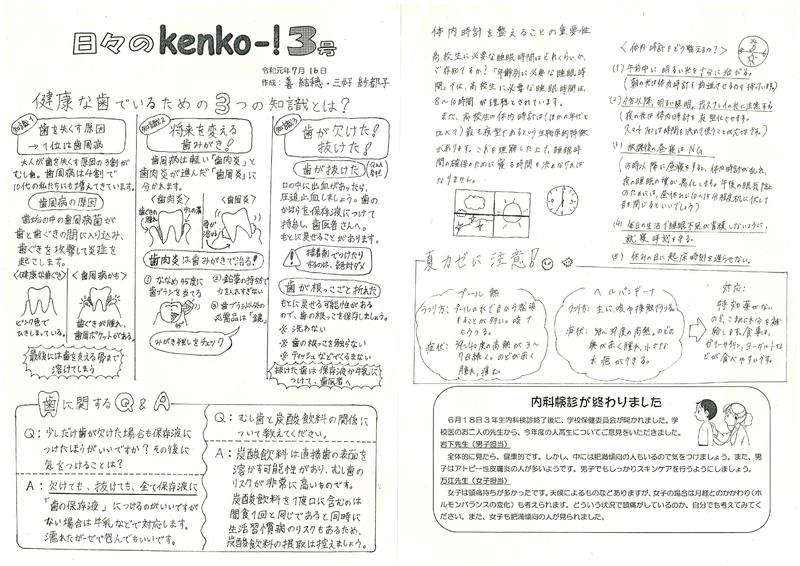 日々のkenko-!3号
令和元年7月16日
健康な歯でいるための3つの知識とは?
知識1
歯を失う原因
→1位は歯周病
大人が歯を失う原因の3割が
むし歯。歯周病は4割で
10代の私たちにも増えてきています。
歯周病の原因
歯垢の中の歯周病菌が
歯と歯ぐきの間に入り込み、
歯ぐきを攻撃して炎症を
起こします。
<健康な歯ぐき>
<歯周病かも>
ピンク色で
ひきしまっている。
歯ぐきが腫れ、
歯周ポケットがある。
最後には歯を支える骨まで
溶けてしまう
知識2
将来を変える
歯みがき!
歯周病は軽い「歯肉炎」と
歯肉炎が進んだ「歯周炎」に
分かれます。
<歯肉炎>
<歯周炎>
歯肉炎は歯みがきで治る!
① ななめ45度に
歯ブラシを当てる
② 鉛筆の持ち方で
力を入れすぎない
③ 歯ブラシ以外の
必需品は「鏡」
みがき残しをチェック
知識3
歯が欠けた!
抜けた!
歯が抜けた
口の中に出血があったら、
圧迫止血しましょう。歯の
かけらを保存液につけて
持参し、歯医者さんへ。
もとに戻せることがあります。
接着剤でつけたり
するのは、絶対ダメ
歯が根っこごと折れた
もとに戻せる可能性があるの
で、歯の根っこを保存しましょう。
※ 洗わない
※ 歯の根っこを触らない
※ ティッシュなどでくるまない
抜けた歯は保存液か牛乳に
つけて、歯医者へ
歯に関するQ&A
Q:少しだけ歯が欠けた場合も保存液に
つけたほうがいいですか?その後に
気をつけることは?
A:欠けても、抜けても、全て保存液に
「歯の保存液」につけるのがいいですが
ない場合は牛乳などで対応します。
濡れたガーゼで包んでもいいです。
Q:むし歯と炭酸飲料の関係に
ついて教えてください。
A:炭酸飲料は直接歯の表面を
溶かす可能性があり、むし歯の
リスクが非常に高いものです。
炭酸飲料を1度口に含むのは
間食1回と同じであると同時に
生活習慣病のリスクもあるため、
炭酸飲料の摂取は控えましょう。
体内時計を整えることの重要性
高校生に必要な睡眠時間はどれくらいか、
ご存知ですか?「年齢別に必要な睡眠時
間」では、高校生に必要な睡眠時間は、
8~10時間が理想とされています。
また、高校生の体内時計は(ほかの年代と
比べて)最も夜型であるという生物学的特徴
があります。これを理解した上で、睡眠時
間の確保のために寝る時間を決めなければ
なりません。
<体内時計をどう整えるか?>
(1) 午前中に明るい光を十分に浴びる。
(朝の光は体内時計を前進させるのを持っています)
(3) 放課後の昼寝はNG
(4) 毎日の生活で睡眠不足が蓄積しないように、
就寝時刻を守る。
(5) 休みの日に起床時刻を遅らせない。
夏カゼに注意!
プール熱
うつり方:プールの水で目から感染
することが多い。咳で
もうつる。
症状:39~40度の高熱が3~
7日続く。のどが赤く
腫れ、痛む
ヘルパンギーナ
うつり方:主に、咳や接触でうつる。
対応:
特効薬がない
内科検診が終わりました
6月18日3年生内科検診終了後に、学校保健委員会が開かれました。学
校医のお二人の先生から、今年度の人高生についてご意見をいただきました。
岩下先生(男子担当)
全体的に見たら、健康的です。しかし、中には肥満傾向の人もいるので気をつけましょう。また、男
子はアトピー性皮膚炎の人が多いようです。男子でもしっかりスキンケアを行うようにしましょう。
万江先生(女子担当)
女子は頭痛持ちが多かったです。天候によるものなどありますが、女子の場合は月経とのかかわり(ホ
ルモンバランスの変化)も考えられます。どういう状況で頭痛がしているのか、自分でも考えてみてく
ださい。また、女子も肥満傾向の人が見られました。